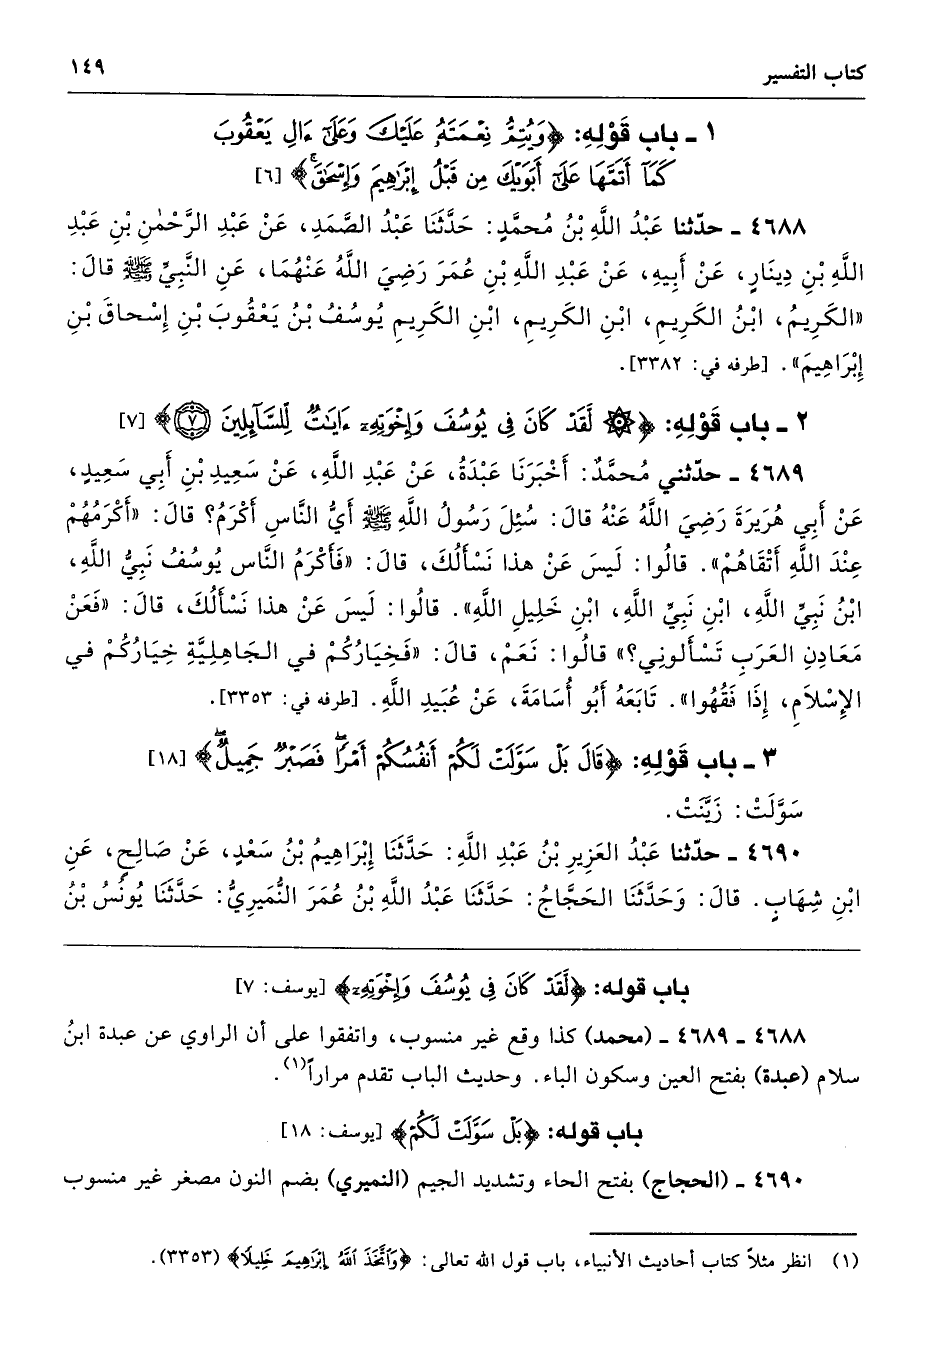 كتاب التفسير
١٤٩
١ ـ باب قَوْلِهِ: ﴿وَيُتِمُّ نِعْمَتَهُ عَلَيْكَ وَعَلَىٰٓ ءَالِ يَعْقُوبَ
كَمَآ أَتَمَّهَا عَلَىٰٓ أَبَوَيْكَ مِن قَبْلُ إِبْرَٰهِيمَ وَإِسْحَٰقَۚ﴾ [٦]
٤٦٨٨ ـ حدّثنا عَبْدُ اللَّهِ بْنُ مُحمَّدٍ: حَدَّثَنَا عَبْدُ الصَّمَدِ، عَنْ عَبْدِ الرَّحْمٰنِ بْنِ عَبْدِ
اللَّهِ بْنِ دِينَارٍ، عَنْ أَبِيهِ، عَنْ عَبْدِ اللَّهِ بْنِ عُمَرَ رَضِيَ اللَّهُ عَنْهُمَا، عَنِ النَّبِيِّ ﷺ قالَ:
«الكَرِيمُ، ابْنُ الكَرِيمِ، ابْنِ الكَرِيمِ، ابْنِ الكَرِيمِ يُوسُفُ بْنُ يَعْقُوبَ بْنِ إِسْحاقَ بْنِ
إِبْرَاهِيمَ». [طرفه في: ٣٣٨٢].
٢ ـ باب قَوْلِهِ: ﴿۞ لَّقَدْ كَانَ فِى يُوسُفَ وَإِخْوَتِهِۦٓ ءَايَٰتٌ لِّلسَّآئِلِينَ ٧﴾ [٧]
٤٦٨٩ ـ حدّثني مُحمَّدٌ: أَخْبَرَنَا عَبْدَةُ، عَنْ عَبْدِ اللَّهِ، عَنْ سَعِيدِ بْنِ أَبِي سَعِيدٍ،
عَنْ أَبِي هُرَيْرَةَ رَضِيَ اللَّهُ عَنْهُ قالَ: سُئِلَ رَسُولُ اللَّهِ ﷺ أَيُّ النَّاسِ أَكْرَمُ؟ قالَ: «أَكْرَمُهُمْ
عِنْدَ اللَّهِ أَتْقَاهُمْ». قالُوا: لَيسَ عَنْ هذا نَسْأَلُكَ، قالَ: «فَأَكْرَمُ النَّاسِ يُوسُفُ نَبِيُّ اللَّهِ،
ابْنُ نَبِيِّ اللَّهِ، ابْنِ نَبِيِّ اللَّهِ، ابْنِ خَلِيلِ اللَّهِ». قالُوا: لَيسَ عَنْ هذا نَسْأَلُكَ، قالَ: «فَعَنْ
مَعَادِنِ العَرَبِ تَسْأَلونِي؟» قالُوا: نَعَمْ، قالَ: «فَخِيَارُكُمْ في الجَاهِلِيَّةِ خِيَارُكُمْ في
الإِسْلَامِ، إِذَا فَقُهُوا». تَابَعَهُ أَبُو أُسَامَةَ، عَنْ عُبَيدِ اللَّهِ. [طرفه في: ٣٣٥٣].
٣ ـ باب قَوْلِهِ: ﴿قَالَ بَلْ سَوَّلَتْ لَكُمْ أَنفُسُكُمْ أَمْرًاۖ فَصَبْرٌ جَمِيلٌۖ﴾ [١٨]
سَوَّلَتْ: زَيَّنَتْ.
٤٦٩٠ ـ حدّثنا عَبْدُ العَزِيزِ بْنُ عَبْدِ اللَّهِ: حَدَّثَنَا إِبْرَاهِيمُ بْنُ سَعْدٍ، عَنْ صَالِحٍ، عَنِ
ابْنِ شِهَابٍ. قالَ: وَحَدَّثَنَا الحَجَّاجُ: حَدَّثَنَا عَبْدُ اللَّهِ بْنُ عُمَرَ النُّمَيرِيُّ: حَدَّثَنَا يُونُسُ بْنُ
باب قوله: ﴿لَّقَدْ كَانَ فِى يُوسُفَ وَإِخْوَتِهِۦٓ﴾ [يوسف: ٧]
٤٦٨٨ ـ ٤٦٨٩ ـ (محمد) كذا وقع غير منسوب، واتفقوا على أن الراوي عن عبدة ابنُ
سلام (عبدة) بفتح العين وسكون الباء. وحديث الباب تقدم مراراً(١).
باب قوله: ﴿بَلْ سَوَّلَتْ لَكُمْ﴾ [يوسف: ١٨]
٤٦٩٠ ـ (الحجاج) بفتح الحاء وتشديد الجيم (النميري) بضم النون مصغر غير منسوب
(١) انظر مثلاً كتاب أحاديث الأنبياء، باب قول الله تعالى: ﴿وَٱتَّخَذَ ٱللَّهُ إِبْرَٰهِيمَ خَلِيلًا﴾ (٣٣٥٣).